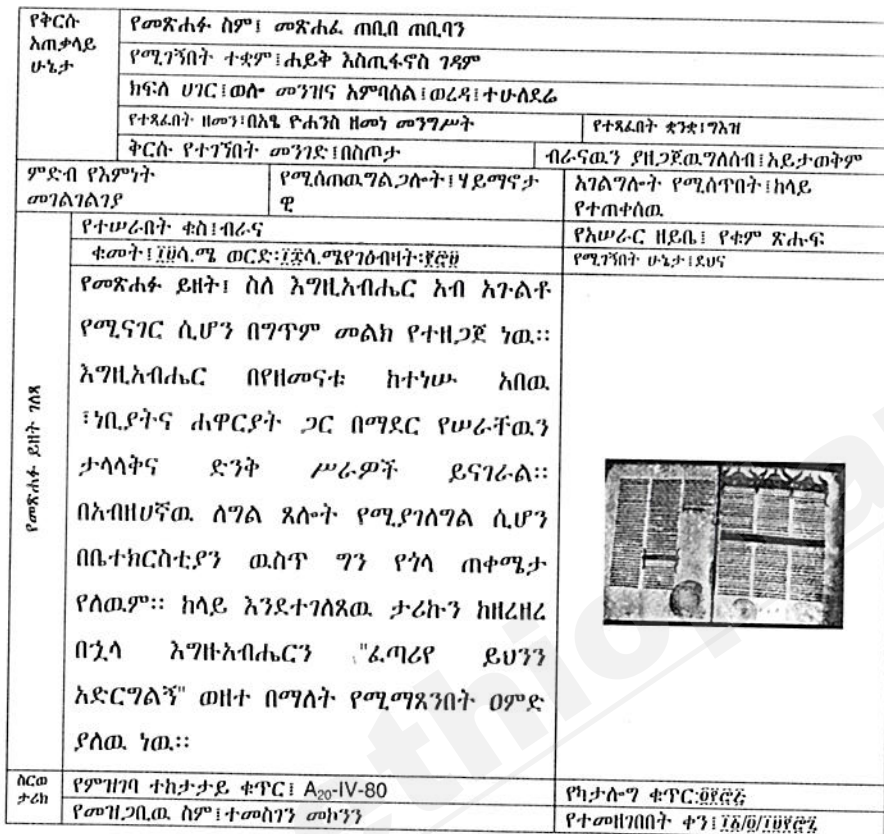 የቅርሱ አጠቃላይ ሁኔታ
የመጽሐፉ ስም፤ መጽሐፈ ጠቢበ ጠቢባን
የሚገኝበት ተቋም፤ሐይቅ እስጢፋኖስ ገዳም
ክፍለ ሀገር፤ወሎ መንዝና አምባሰል፤ወረዳ፤ተሁለደሬ
የተጻፈበት ዘመን፡በአፄ ዮሐንስ ዘመነ መንግሥት
የተጻፈበት ቋንቋ፤ግእዝ
ቅርሱ የተገኘበት መንገድ፤በስጦታ
ብራናዉን ያዘጋጀዉግለሰብ፤አይታወቅም
ምድብ የእምነት
መገልገልገያ
የሚሰጠዉግልጋሎት፤ሃይማኖታ
ዊ
አገልግሎት የሚሰጥበት፤ከላይ
የተጠቀሰዉ
የመጽሐፉ ይዘት ገለጻ
የተሠራበት ቁስ፤ብራና
የአሠራር ዘይቤ፤ የቁም ጽሑፍ
ቁመት፤ ሳ.ሜ ወርድ፡ ሳ.ሜየገፅብዛት፡
የሚገኝበት ሁኔታ፤ደህና
የመጽሐፉ ይዘት፤ ስለ እግዚአብሔር አብ አጉልቶ
የሚናገር ሲሆን በግጥም መልክ የተዘጋጀ ነዉ፡፡
እግዚአብሔር በየዘመናቱ ከተነሡ አበዉ
፣ነቢያትና ሐዋርያት ጋር በማደር የሠራቸዉን
ታላላቅና ድንቅ ሥራዎች ይናገራል፡፡
በአብዘሀኛዉ ለግል ጸሎት የሚያገለግል ሲሆን
በቤተክርስቲያን ዉስጥ ግን የጎላ ጠቀሜታ
የለዉም፡፡ ከላይ እንደተገለጸዉ ታሪኩን ከዘረዘረ
በኂላ እግዙአብሔርን "ፈጣሪየ ይህንን
አድርግልኝ" ወዘተ በማለት የሚማጸንበት ዐምድ
ያለዉ ነዉ፡፡
ስርወ
ታሪክ
የምዝገባ ተከታታይ ቁጥር፤ A20-IV-80
የካታሎግ ቁጥር:
የመዝጋቢዉ ስም፤ተመስገን መኮንን
የተመዘገበበት ቀን፤